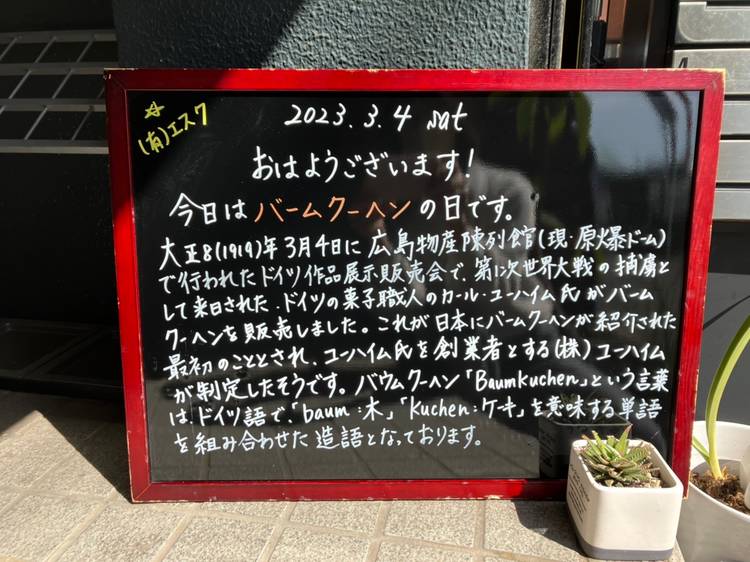 ☆
(有)エスク
2023.3.4 sat
おはようございます!
今日はバームクーヘンの日です。
大正8(1919)年3月4日に広島物産陳列館(現・原爆ドーム)
で行われたドイツ作品展示販売会で、第1次世界大戦の捕虜と
して来日された、ドイツの菓子職人のカール・ユーハイム氏がバーム
クーヘンを販売しました。これが日本にバームクーヘンが紹介された
最初のこととされ、ユーハイム氏を創業者とする(株)ユーハイム
が制定したそうです。バウムクーヘン「Baumkuchen」という言葉
は、ドイツ語で、「baum:木」「kuchen:ケーキ」を意味する単語
を組み合わせた造語となっております。